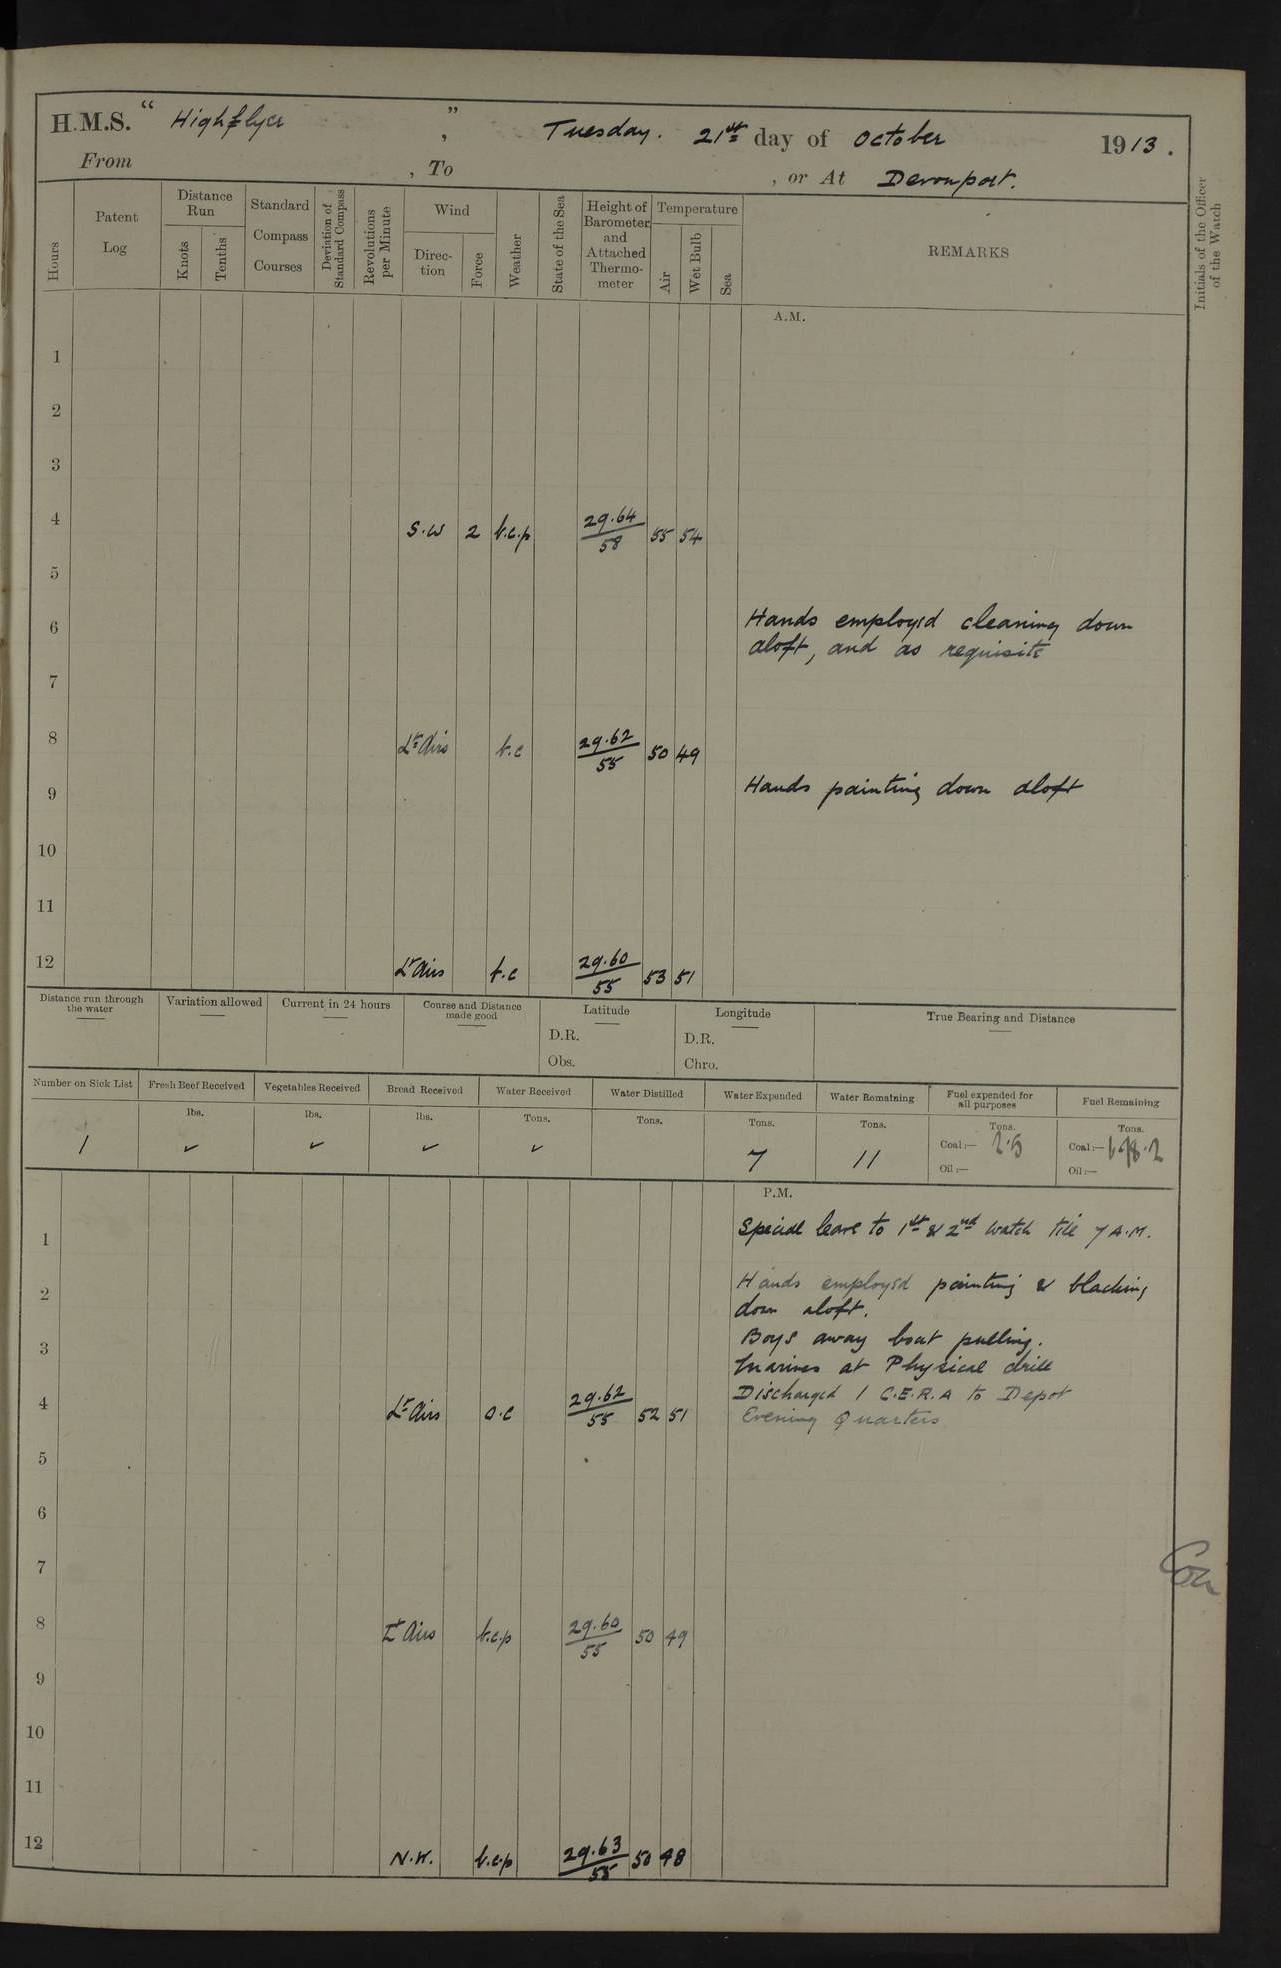 H.M.S. " Highflyer " , Tuesday. 21st day of October 1913.
From , To , or At Devonport.
Hours
Patent Log
Distance Run
Knots
Tenths
Standard Compass Courses
Deviation of Standard Compass
Revolutions per Minute
Wind
Direc-tion
Force
Weather
State of the Sea
Height of Barometer and Attached Thermo-meter
Temperature
Air
Wet Bulb
Sea
REMARKS
Initials of the Officer of the Watch
A.M.
1
2
3
4 S.W 2 b.c.p 29.64/58 55 54
5
6 Hands employed cleaning down
aloft, and as requisite
7
8 Lt Airs b.c 29.62/55 50 49
9 Hands painting down aloft
10
11
12 Lt Airs b.c 29.60/55 53 51
Distance run through the water
Variation allowed
Current in 24 hours
Course and Distance made good
Latitude
D.R.
Obs.
Longitude
D.R.
Chro.
True Bearing and Distance
Number on Sick List
1
Fresh Beef Received
lbs.
✓
Vegetables Received
lbs.
✓
Bread Received
lbs.
✓
Water Received
Tons.
✓
Water Distilled
Tons.
Water Expended
Tons.
7
Water Remaining
Tons.
11
Fuel expended for all purposes
Tons.
Coal:—
Oil:—
Fuel Remaining
Tons.
Coal:—
Oil:—
P.M.
1 Special leave to 1st & 2nd watch till 7 A.M.
2 Hands employed painting & blacking
down aloft.
3 Boys away boat pulling.
Marines at Physical drill
Discharged 1 C.E.R.A to Depot
4 Lt Airs o.c 29.62/55 52 51 Evening Quarters
5
6
7
8 Lt Airs b.c.p 29.60/55 50 49
9
10
11
12 b.c.p 29.63/55 50 48